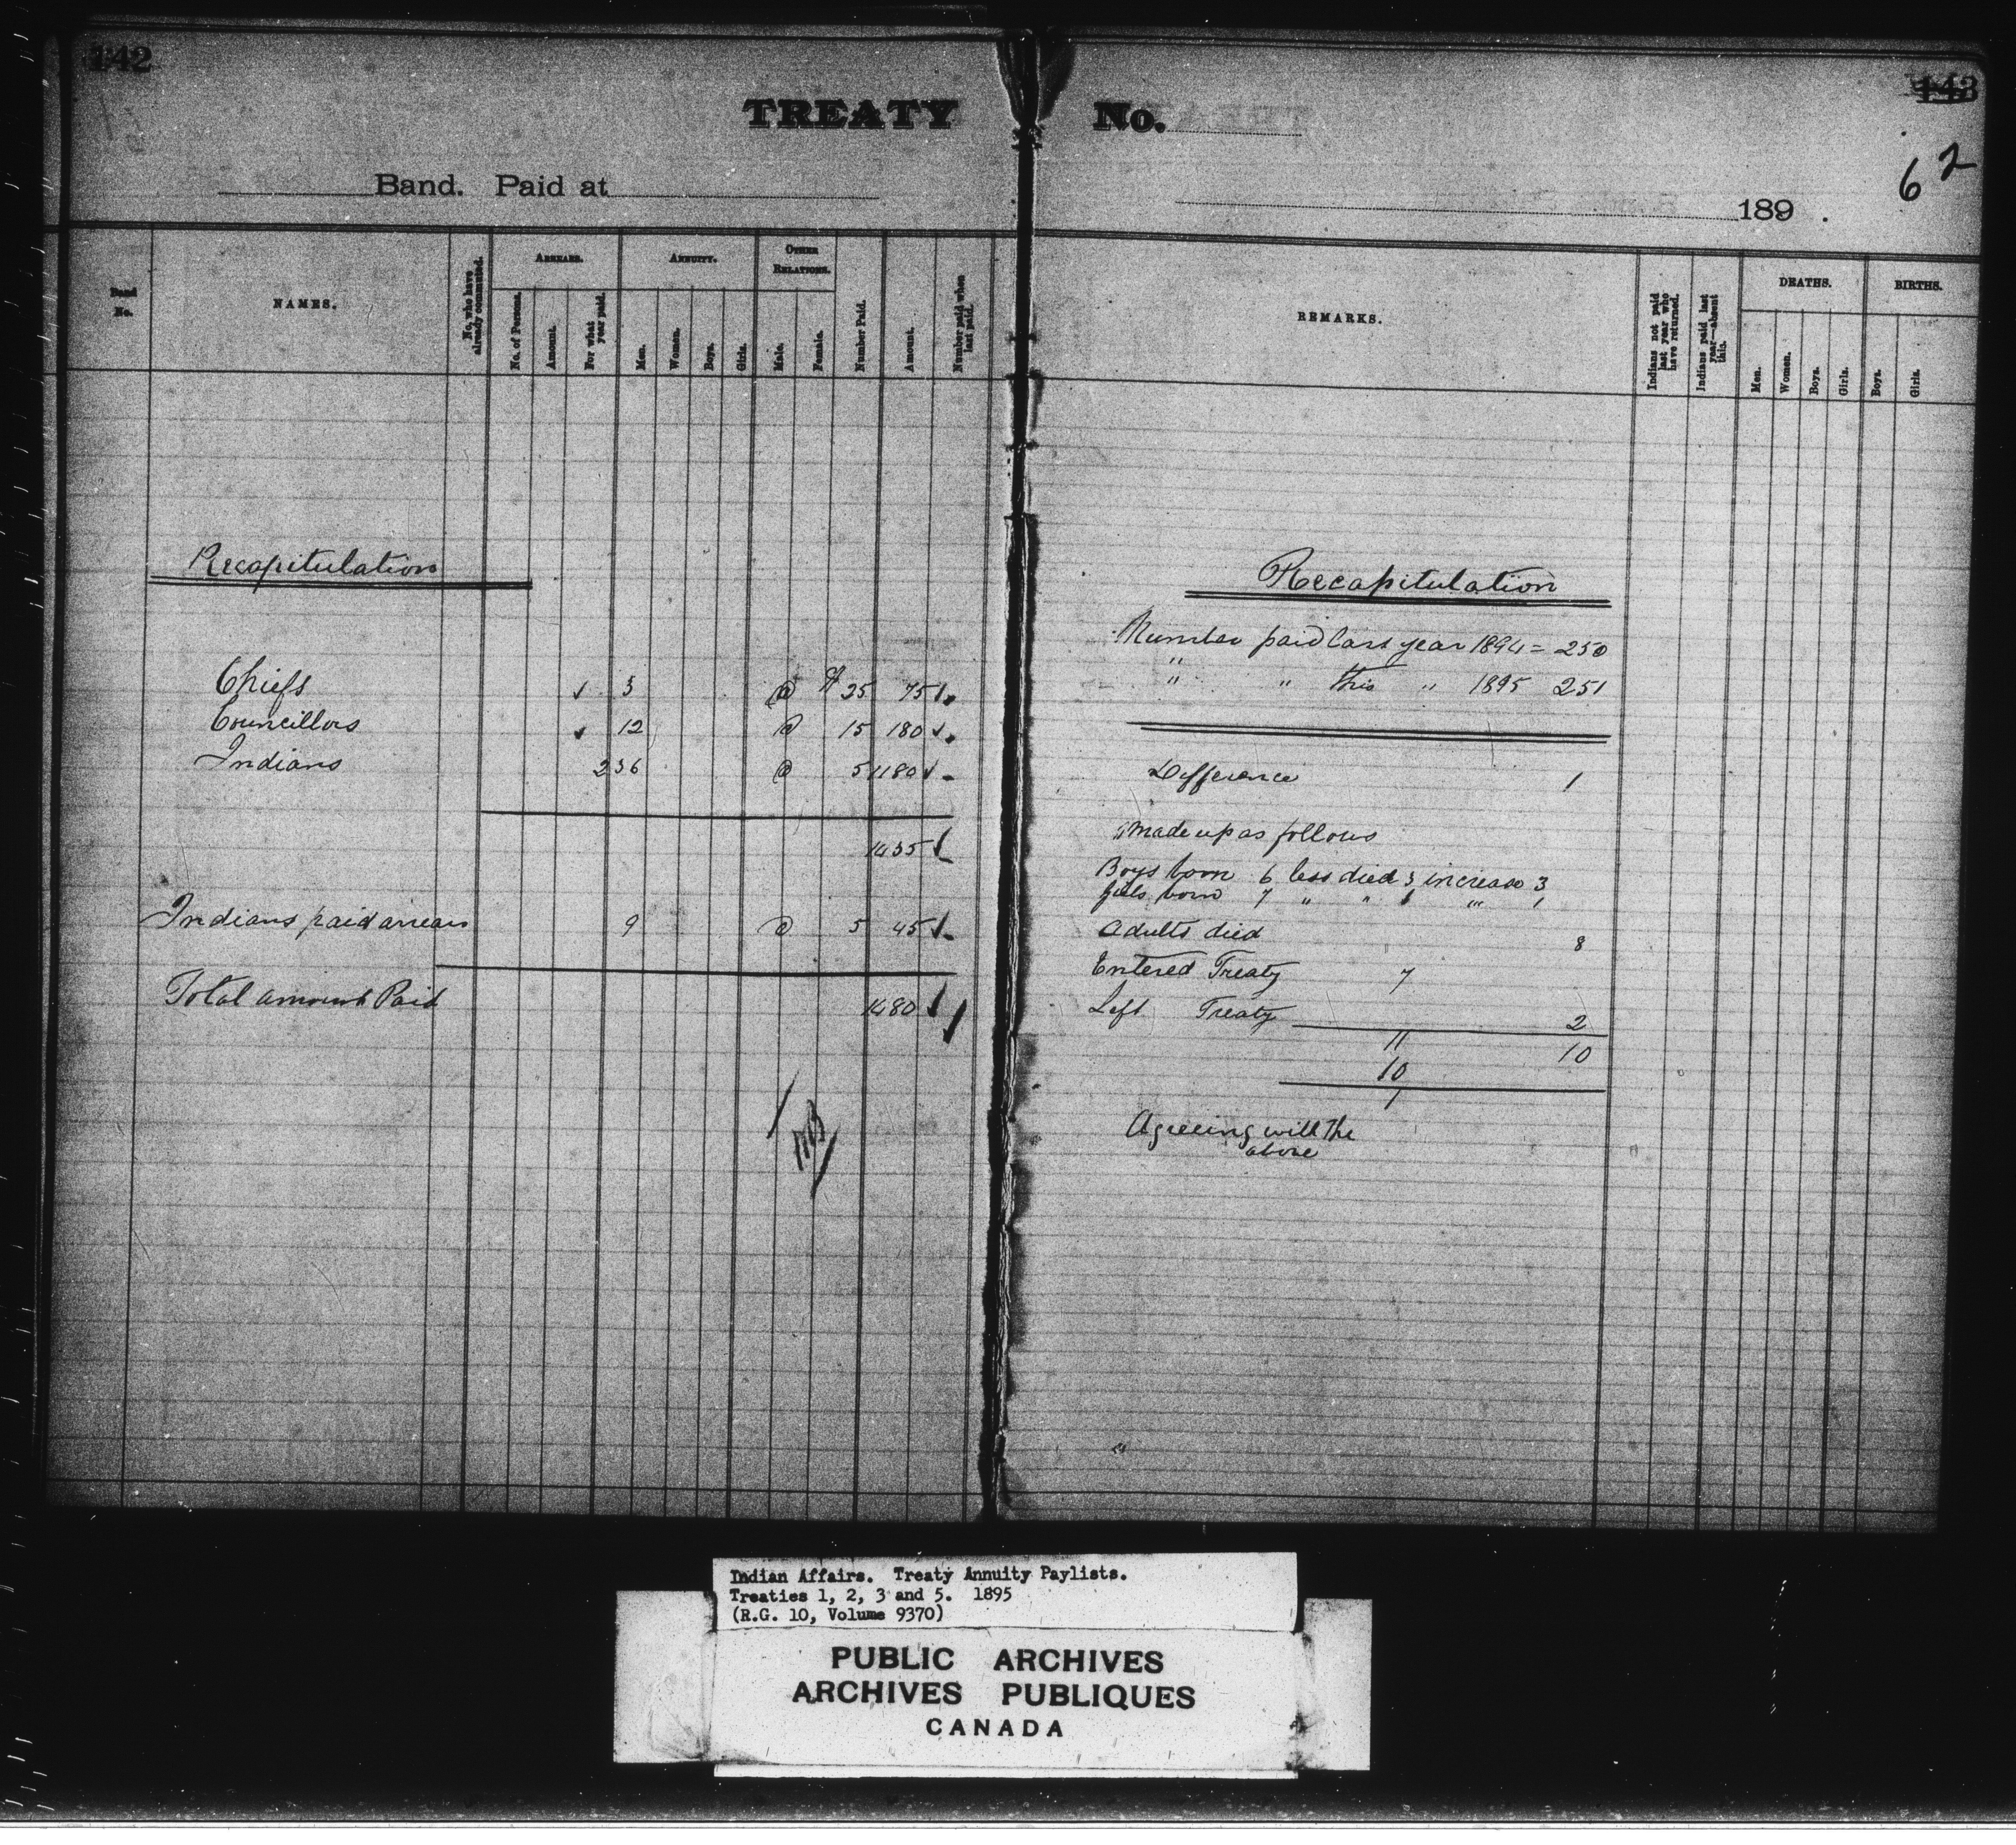 142
TREATY No.
143
62
Band. Paid at
189 .
Band No.
NAMES.
No. who have already commuted.
ARREARS.
No. of Persons.
Amount.
For what year paid.
ANNUITY.
Men.
Women.
Boys.
Girls.
OTHER RELATIONS.
Male.
Female.
Number Paid.
Amount.
Number paid when last paid.
REMARKS.
Indians not paid last year who have returned.
Indians paid last year—absent this.
DEATHS.
Men.
Women.
Boys.
Girls.
BIRTHS.
Boys.
Girls.
Recapitulation
Chiefs ✓ 3 @ $ 25 75 ✓
Councillors ✓ 12 @ 15 180 ✓
Indians 236 @ 5 1180 ✓
1435 ✓
Indians paid arrears 9 @ 5 45 ✓
Total amount Paid 1480 ✓
Recapitulation
Number paid last year 1894 = 250
" " this " 1895 251
Difference 1
Made up as follows
Boys born 6 less died 3 increase 3
Girls born 7 " " "' 1
Adults died 8
Entered Treaty 7
Left Treaty 2
11 10
10
1
Agreeing with the
above
Indian Affairs. Treaty Annuity Paylists.
Treaties 1, 2, 3 and 5. 1895
(R.G. 10, Volume 9370)
PUBLIC ARCHIVES
ARCHIVES PUBLIQUES
CANADA